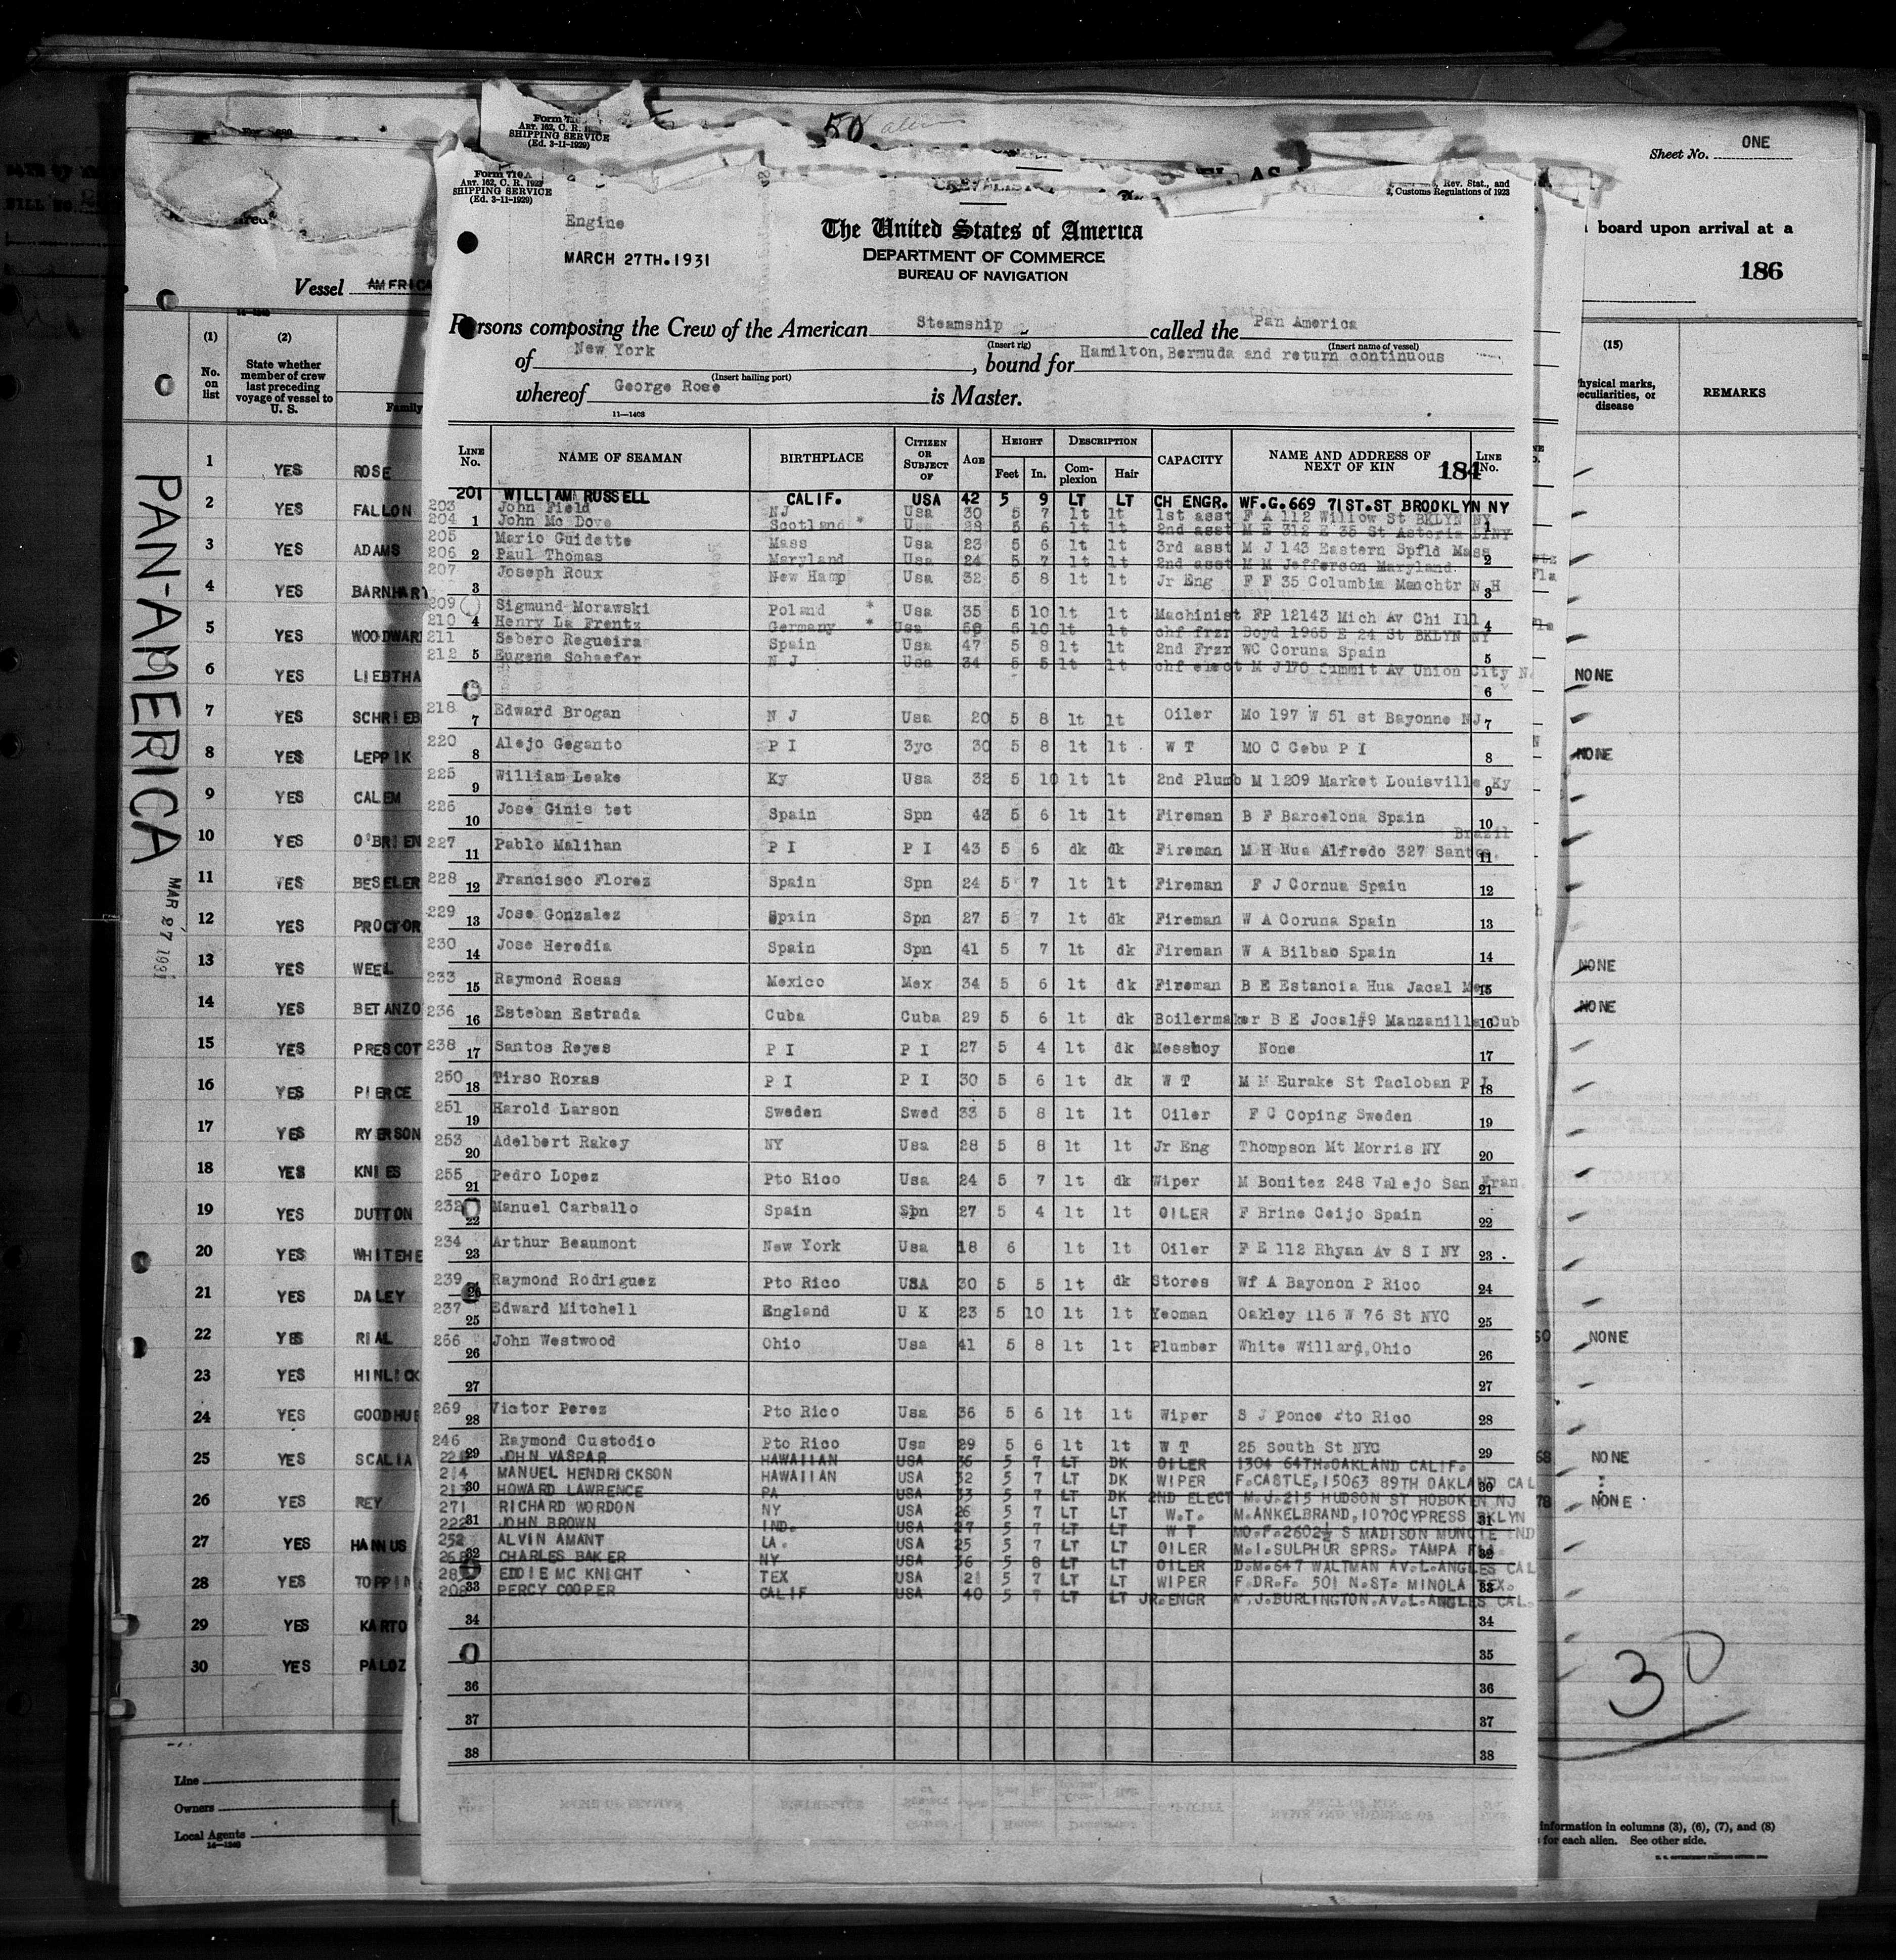 50
Form 710A
ART. 162, C. R.
SHIPPING SERVICE
(Ed. 3-11-1929)
Sheet No. ONE
Form 710A
ART. 162, C. R. 1923
SHIPPING SERVICE
(Ed. 3-11-1929)
Rev. Stat., and
Customs Regulations of 1923
Engine
MARCH 27TH.1931
The United States of America
DEPARTMENT OF COMMERCE
BUREAU OF NAVIGATION
board upon arrival at a
186
Vessel
Persons composing the Crew of the American Steamship called the Pan America
(Insert rig) (Insert name of vessel)
of New York, bound for Hamilton, Bermuda and return continuous
(Insert hailing port)
whereof George Rose is Master.
11—1408
LINE No. NAME OF SEAMAN BIRTHPLACE CITIZEN OR SUBJECT OF AGE HEIGHT Feet In. DESCRIPTION Complexion Hair CAPACITY NAME AND ADDRESS OF NEXT OF KIN 184 LINE No.
201 WILLIAM RUSSELL CALIF. USA 42 5 9 LT LT CH ENGR. WF.G.669 71ST.ST BROOKLYN NY
203 John Field NJ Usa 30 5 7 lt lt 1st asst F A 112 Willow St BKLYN NY
204 1 John Mc Dove Scotland * Usa 28 5 6 lt lt 2nd asst M E 312 E 35 St Astoria LINY 1
205 Mario Guidette Mass Usa 23 5 6 lt lt 3rd asst M J 143 Eastern Spfld Mass
206 2 Paul Thomas Maryland Usa 24 5 7 lt lt 2nd asst M M Jefferson Maryland 2
207 3 Joseph Roux New Hamp Usa 32 5 8 lt lt Jr Eng F F 35 Columbia Manchtr N H 3
209 Sigmund Morawski Poland * Usa 35 5 10 lt lt Machinist FP 12143 Mich Av Chi Ill
210 4 Henry La Frentz Germany * Usa 5 10 lt lt chf frzr Boyd 1965 E 24 St BKLYN NY 4
211 Sebero Regueira Spain Usa 47 5 8 lt lt 2nd Frzr WC Coruna Spain
212 5 Eugene Schaefer N J Usa 34 5 5 lt lt chf elect M J 170 Summit Av Union City N. 5
6
218 7 Edward Brogan N J Usa 20 5 8 lt lt Oiler Mo 197 W 51 st Bayonne NJ 7
220 8 Alejo Geganto P I 3yc 30 5 8 lt lt W T MO C Cebu P I 8
225 9 William Leake Ky Usa 32 5 10 lt lt 2nd Plumb M 1209 Market Louisville Ky 9
226 10 Jose Ginis tet Spain Spn 43 5 6 lt lt Fireman B F Barcelona Spain 10
Brazil
227 11 Pablo Malihan P I P I 43 5 6 dk dk Fireman M H Rua Alfredo 327 Santos. 11
228 12 Francisco Florez Spain Spn 24 5 7 lt lt Fireman F J Cornua Spain 12
229 13 Jose Gonzalez Spain Spn 27 5 7 lt dk Fireman W A Coruna Spain 13
230 14 Jose Heredia Spain Spn 41 5 7 lt dk Fireman W A Bilbao Spain 14
233 15 Raymond Rosas Mexico Mex 34 5 6 lt dk Fireman B E Estancia Hua Jacal Mex 15
236 16 Esteban Estrada Cuba Cuba 29 5 6 lt dk Boilermaker B E Jocal#9 Manzanilla Cub 16
238 17 Santos Reyes P I P I 27 5 4 lt dk Messboy None 17
250 18 Tirso Roxas P I P I 30 5 6 lt dk W T M N Eurake St Tacloban P I 18
251 19 Harold Larson Sweden Swed 33 5 8 lt lt Oiler F C Coping Sweden 19
253 20 Adelbert Rakey NY Usa 28 5 8 lt lt Jr Eng Thompson Mt Morris NY 20
255 21 Pedro Lopez Pto Rico Usa 24 5 7 lt dk Wiper M Bonitez 248 Valejo San Fran. 21
232 22 Manuel Carballo Spain Spn 27 5 4 lt lt OILER F Brine Ceijo Spain 22
234 23 Arthur Beaumont New York Usa 18 6 lt lt Oiler F E 112 Rhyan Av S I NY 23
239 Raymond Rodriguez Pto Rico USA 30 5 5 lt dk Stores Wf A Bayonon P Rico 24
237 25 Edward Mitchell England U K 23 5 10 lt lt Yeoman Oakley 115 W 76 St NYC 25
266 26 John Westwood Ohio Usa 41 5 8 lt lt Plumber White Willard,Ohio 26
27 27
269 28 Victor Perez Pto Rico Usa 36 5 6 lt lt Wiper S J Ponce Pto Rico 28
246 29 Raymond Custodio Pto Rico Usa 29 5 6 lt lt W T 25 South St NYC 29
JOHN VASPAR HAWAIIAN USA 36 5 7 LT DK OILER 1304 64TH.OAKLAND CALIF.
MANUEL HENDRICKSON HAWAIIAN USA 32 5 7 LT DK WIPER F.CASTLE,15063 89TH OAKLAND CAL
30 HOWARD LAWRENCE PA USA 33 5 7 LT DK 2ND ELECT M.J.215 HUDSON ST HOBOKEN NJ 30
271 RICHARD WORDON NY USA 26 5 7 LT LT W.T. M.ANKELBRAND,1070CYPRESS BKLYN
222 31 JOHN BROWN IND. USA 27 5 7 LT LT W T MO.F.2602½ S MADISON MUNCIE IND 31
252 ALVIN AMANT LA. USA 25 5 7 LT LT OILER M.I.SULPHUR SPRS. TAMPA FLA.
32 CHARLES BAKER NY USA 36 5 8 LT LT OILER D.M.647 WALTMAN AV.L.ANGLES CAL 32
EDDIE MC KNIGHT TEX USA 21 5 7 LT LT WIPER F.DR.F. 501 N.ST. MINOLA TEX.
208 33 PERCY COOPER CALIF USA 40 5 7 LT LT JR.ENGR J.BURLINGTON.AV.L.ANGLES CAL. 33
34 34
35
36 36
37 37
38 38
(1) No. on list
(2) State whether member of crew last preceding voyage of vessel to U. S.
Family
1 YES ROSE
2 YES FALLON
3 YES ADAMS
4 YES BARNHART
5 YES WOODWAR
6 YES LIEBTHA
7 YES SCHRIEB
8 YES LEPPIK
9 YES CALEM
10 YES O'BRIEN
11 YES BESELER
12 YES PROCTOR
13 YES WEEL
14 YES BETANZO
15 YES PRESCOT
16 YES PIERCE
17 YES RYERSON
18 YES KNIES
19 YES DUTTON
20 YES WHITEHE
21 YES DALEY
22 YES RIAL
23 YES HINLICK
24 YES GOODHUE
25 YES SCALIA
26 YES REY
27 YES HANNUS
28 YES TOPPIN
29 YES KARTO
30 YES PALOZ
Line
Owners
Local Agents
PAN-AMERICA
MAR 27 1931
(15)
Physical marks, peculiarities, or disease
REMARKS
NONE
NONE
NONE
NONE
NONE
NONE
NONE
30
information in columns (3), (6), (7), and (8)
for each alien. See other side.